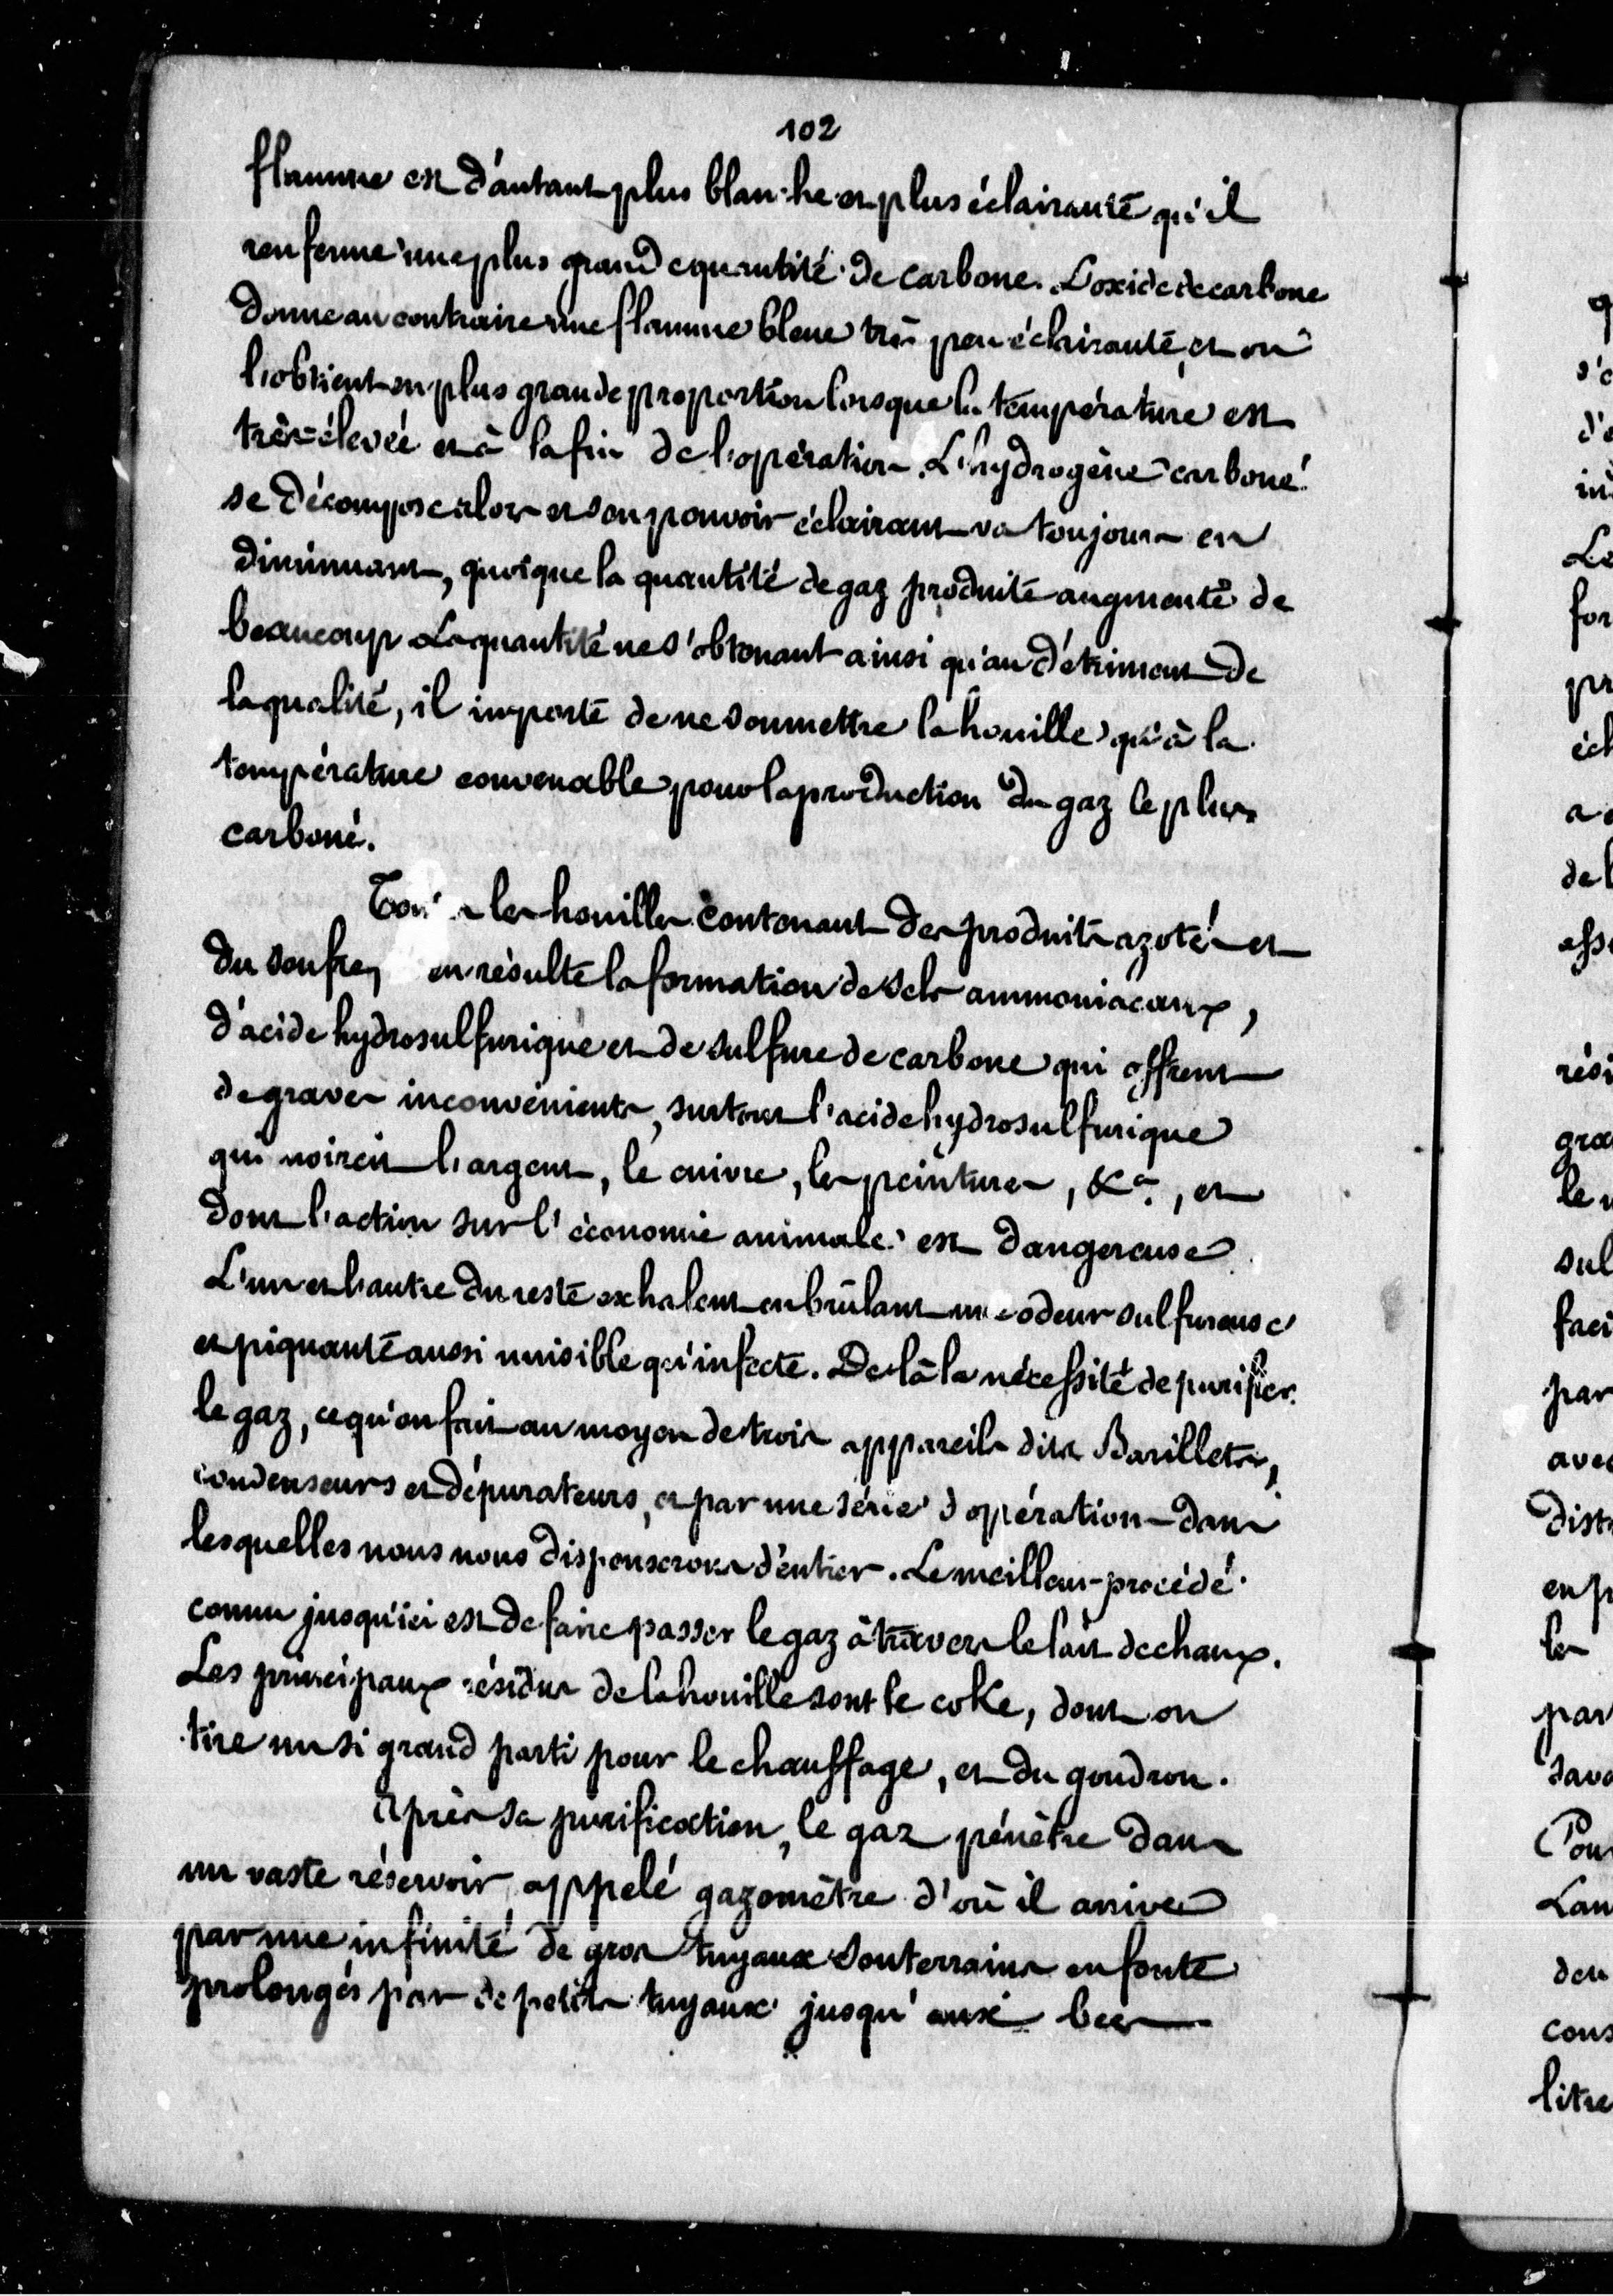 102
flamme est d'autant plus blanche et plus éclairante qu'il
renferme une plus grande quantité de carbone. L'oxide de carbone
donne au contraire une flamme bleue très peu éclairante, et on
l'obtient en plus grande proportion lorsque la température est
très-élevée et à la fin de l'opération. L'hydrogène carboné
se décompose alors et son pouvoir éclairant va toujours en
diminuant, quoique la quantité de gaz produite augmente de
beaucoup. La quantité ne s'obtenant ainsi qu'au détriment de
la qualité, il importe de ne soumettre la houille qu'à la
température convenable pour la production du gaz le plus
carboné.
Toutes les houilles contenant des produits azotés et
du soufre, en résulte la formation de sels ammoniacaux,
d'acide hydrosulfurique et de sulfure de carbone qui offrent
de graves inconvénients, surtout l'acide hydrosulfurique
qui noircit l'argent, le cuivre, les peintures, &a., et
dont l'action sur l'économie animale est dangereuse.
L'un et l'autre du reste exhalent en brûlant une odeur sulfureuse
et piquante aussi nuisible qu'infecte. De là la nécessité de purifier
le gaz, ce qu'on fait au moyen de trois appareils dits Barillets,
condenseurs et dépurateurs, et par une série d'opérations dans
lesquelles nous nous dispenserons d'entrer. Le meilleur procédé
connu jusqu'ici est de faire passer le gaz à travers le lait de chaux.
Les principaux résidus de la houille sont le coke, dont on
tire un si grand parti pour le chauffage, et du goudron.
Après sa purification, le gaz pénètre dans
un vaste réservoir appelé gazomètre d'où il arrive
par une infinité de gros tuyaux souterrains en fonte
prolongés par de petits tuyaux jusqu'aux becs